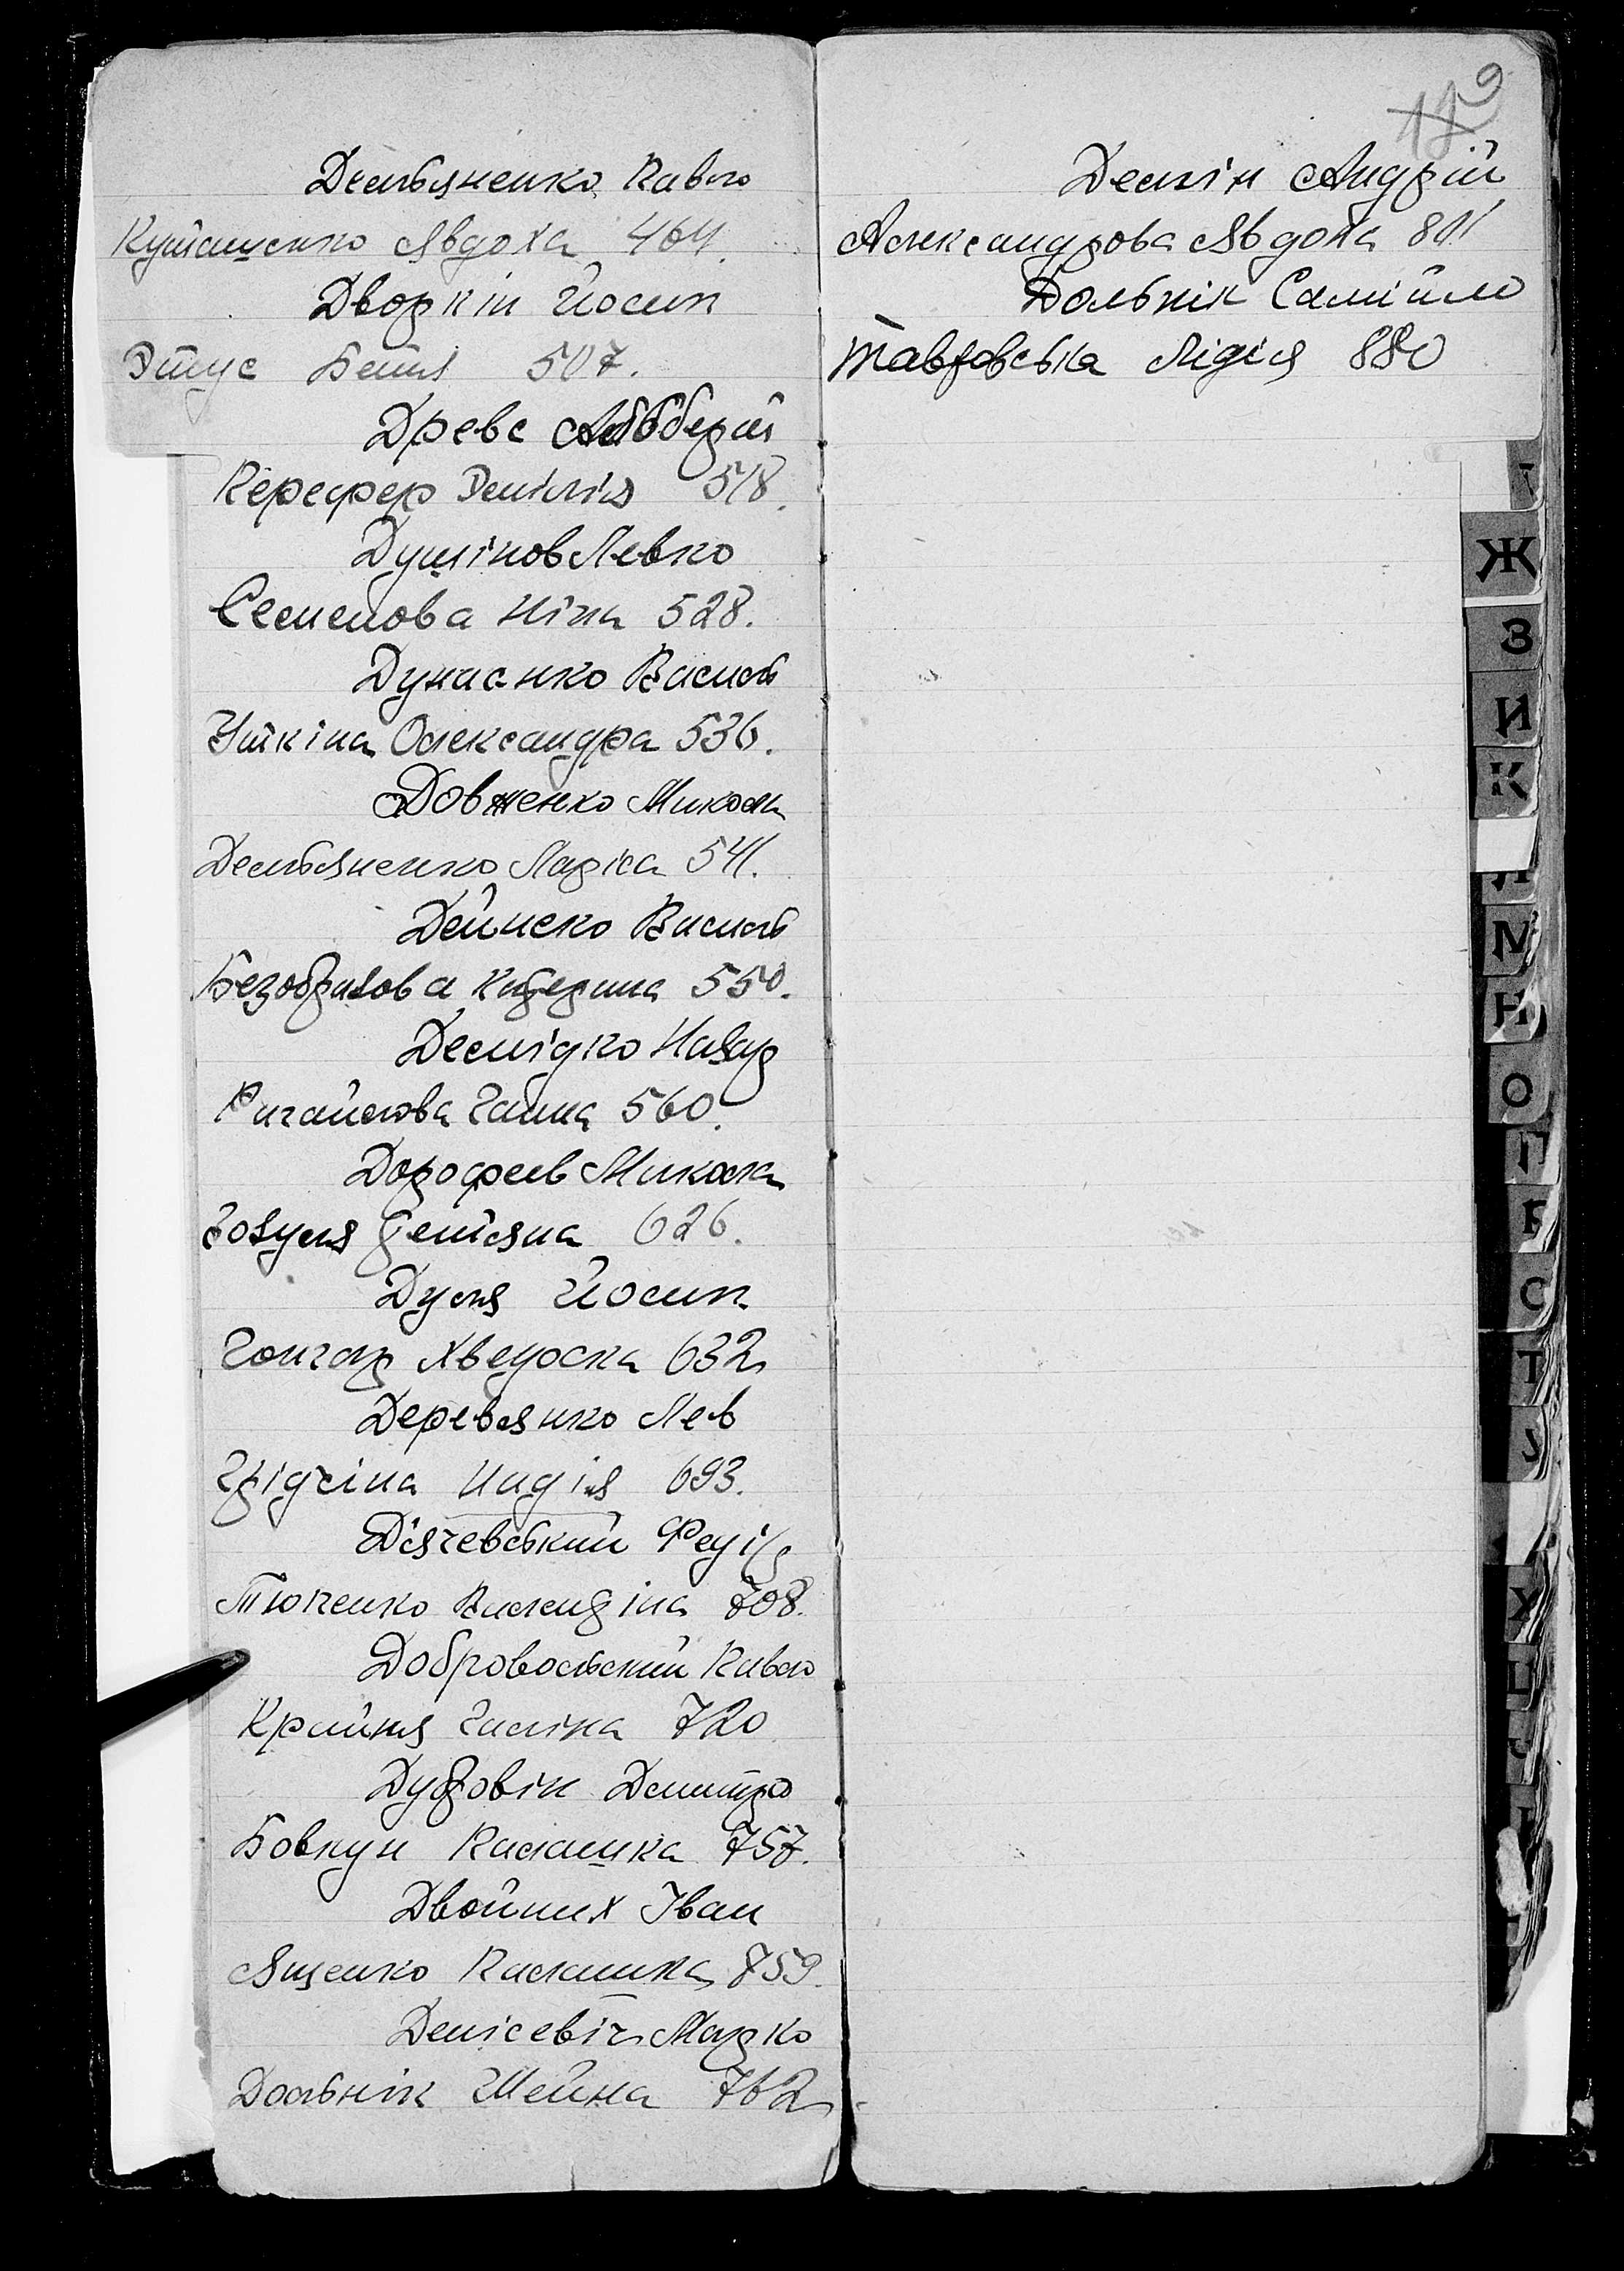 Демьяненко Павло
Куташенко Явдоха 464.
Дворкін Йосип
Этус Бетя 507.
Древс Альберт
Керефер Демілія 518.
Душінов Левко
Семенова Ніна 528.
Дунаєнко Василь
Уткіна Олександра 536.
Довженко Микола
Демьяненко Ларіса 541.
Дейнеко Василь
Безобразова Катерина 550.
Демідко Назар
Ганна 560.
Дорофеев Микола
Зозуля 626.
Дуля Йосип
Гончар Хведоска 632
Деревянко Лев
Грідчіна Надія 693.
Дячевський Федір
Тюпенко Валентіна 708.
Добровольский Павло
Крайня Галіна 720
Дубровін Дмитро
Бовкун Палашка 757.
Двойних Іван
Ященко Палашка 759.
Денісевіч Марко
Дольнік Шейна 762
129
Демін Андрій
Александрова Явдоха 811
Дольнік Самійло
Тавровська Лідія 880
Ж
З
И
К
Л
М
Н
О
П
Р
С
Т
У
Х
Ц